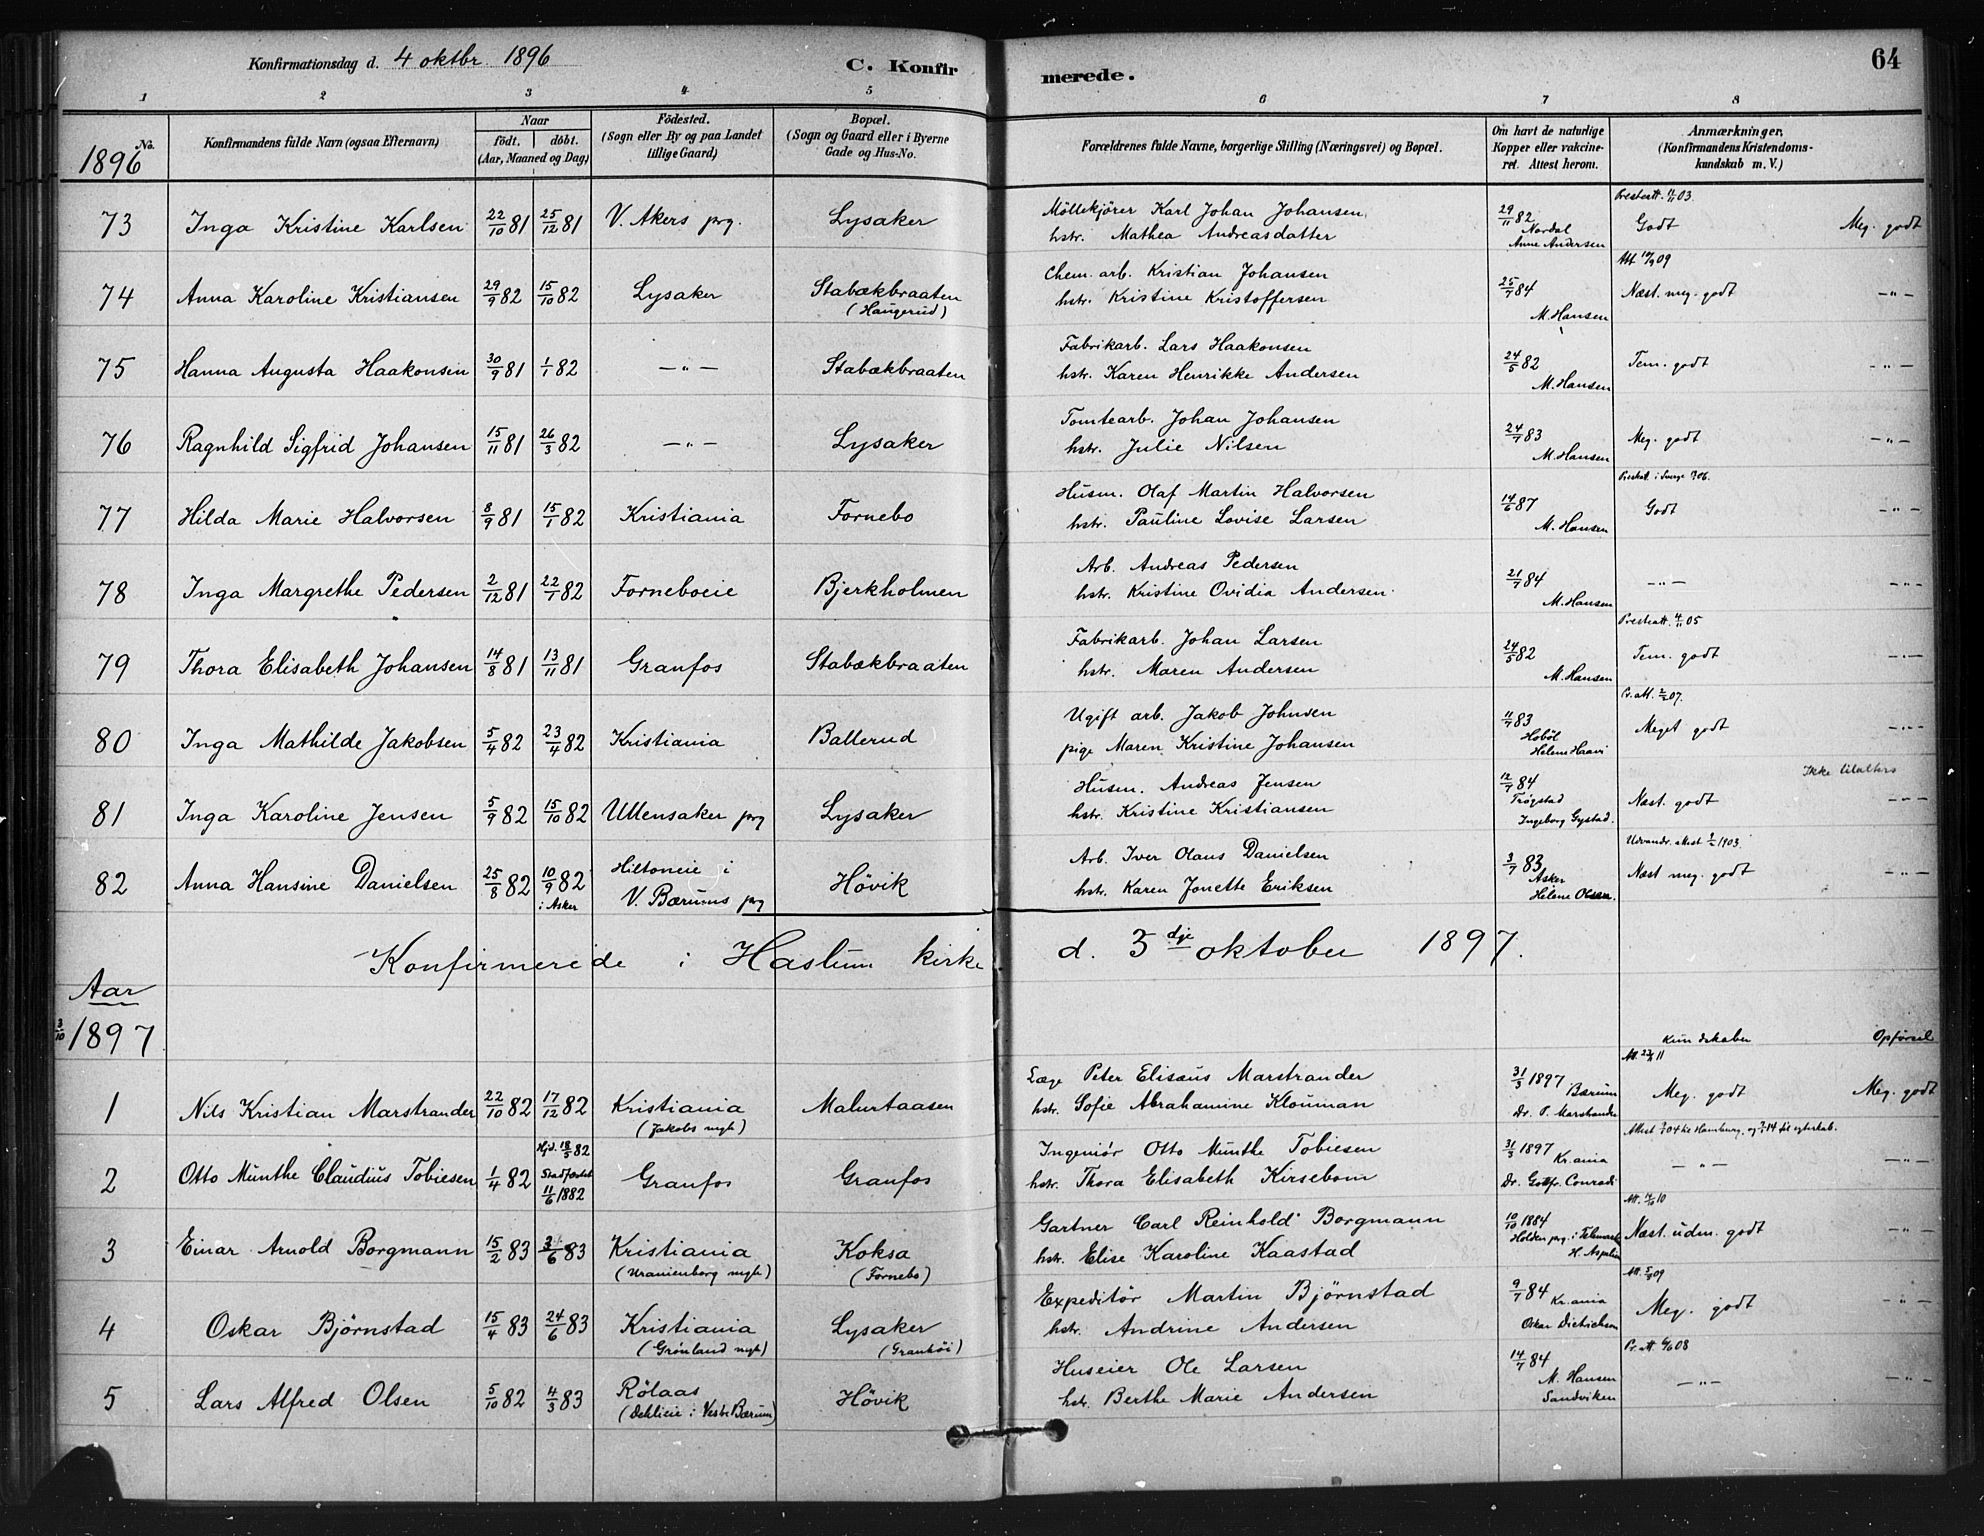 Konfirmationsdag d. 4 oktbr. 1896
C. Konfirmerede.
64
1 2 3 4 5 6 7 8
No.
1896
Konfirmandens fulde Navn (ogsaa Efternavn)
Naar
födt. döbt.
(Aar, Maaned og Dag)
Födested.
(Sogn eller By og paa Landet
tillige Gaard)
Bopæl.
(Sogn og Gaard eller i Byerne
Gade og Hus-No.
Forældrenes fulde Navne, borgerlige Stilling (Næringsvei) og Bopæl.
Om havt de naturlige
Kopper eller vakcine-
ret. Attest herom.
Anmærkninger,
(Konfirmandens Kristendoms-
kundskab m. V.)
Prestatt. 11/11 03.
73 Inga Kristine Karlsen 22/10 81 25/12 81 V. Akers prg. Lysaker Möllekjörer Karl Johan Johansen 29/11 82 Godt Meg. godt
hstr. Mathea Andreasdatter Nordal
Anne Andersen
74 Anna Karoline Kristiansen 29/9 82 15/10 82 Lysaker Stabækbraaten Chem. arb. Kristian Johansen 25/7 84 Næst. meg. godt —"—
(Haugerud) hstr. Kristine Kristoffersen M. Hansen
75 Hanna Augusta Haakonsen 30/9 81 1/1 82 —"— Stabækbraaten Fabrikarb. Lars Haakonsen 24/5 82 Tem. godt —"—
hstr. Karen Henrikke Andersen M. Hansen
76 Ragnhild Sigfrid Johansen 15/11 81 26/3 82 —"— Lysaker Tomtearb. Johan Johansen 24/7 83 Meg. godt —"—
hstr. Julie Nilsen M. Hansen
77 Hilda Marie Halvorsen 8/9 81 15/1 82 Kristiania Fornebo Husm. Olaf Martin Halvorsen 14/6 87 Godt —"—
hstr. Pauline Lovise Larsen M. Hansen
78 Inga Margrethe Pedersen 2/12 81 22/1 82 Forneboeie Bjerkholmen Arb. Andreas Pedersen 21/7 84 —"— —"—
hstr. Kristine Ovidia Andersen M. Hansen
Prestatt. 4/11 05
79 Thora Elisabeth Johansen 14/8 81 13/11 81 Granfos Stabækbraaten Fabrikarb. Johan Larsen 24/5 82 Tem. godt —"—
hstr. Maren Andersen M. Hansen
80 Inga Mathilde Jakobsen 5/4 82 23/4 82 Kristiania Ballerud Ugift arb. Jakob Johnsen 11/7 83 Meget godt —"—
pige Maren Kristine Johansen Hobøl
Helene Haavi
81 Inga Karoline Jensen 5/9 82 15/10 82 Ullensaker prg Lysaker Husm. Andreas Jensen 12/7 84 Næst. godt —"—
hstr. Kristine Kristiansen Trøgstad
Ingeborg Gystad.
82 Anna Hansine Danielsen 25/8 82 10/9 82 Hiltoneie i Høvik Arb. Iver Olaus Danielsen 3/7 83 Næst meg. godt —"—
i Asker V. Bærums prg hstr. Karen Jonette Eriksen Asker
Helene Olsen.
Konfirmerede i Haslum kirke d. 3dje oktober 1897.
Aar
3/10 1897
Kundskaber Opförsel
1 Nils Kristian Marstrander 22/10 82 17/12 82 Kristiania Malurtaasen Læge Peter Elisæus Marstrander 31/3 1897 Meg. godt Meg. godt
(Jakobs mgh) hstr. Sofie Abrahamine Klouman Bærum
Dr. P. Marstrander
2 Otto Munthe Claudius Tobiesen 1/4 82 Hjd. 18/5 82 Granfos Granfos Ingeniør Otto Munthe Tobiesen 31/3 1897 —"— —"—
Stadfæstet hstr. Thora Elisabeth Kirsebom Kr.ania
11/6 1882 Dr. Gottfr. Conradi
3 Einar Arnold Borgmann 15/2 83 3/6 83 Kristiania Koksa Gartner Carl Reinhold Borgmann 10/10 1884 Næst. udm. godt —"—
(Uranienborg mgh) (Fornebo) hstr. Elise Karoline Kaastad Holden prg. i Telemark
4 Oskar Bjørnstad 15/4 83 24/6 83 Kristiania Lysaker Expeditør Martin Bjørnstad 9/7 84 Meg. godt —"—
(Grønland mgh) hstr. Andrine Andersen Kr.ania
Oskar Dietrichson
5 Lars Alfred Olsen 5/10 82 4/3 83 Rölaas Høvik Huseier Ole Larsen 14/7 84 —"— —"—
hstr. Berthe Marie Andersen M. Hansen
Sandviken